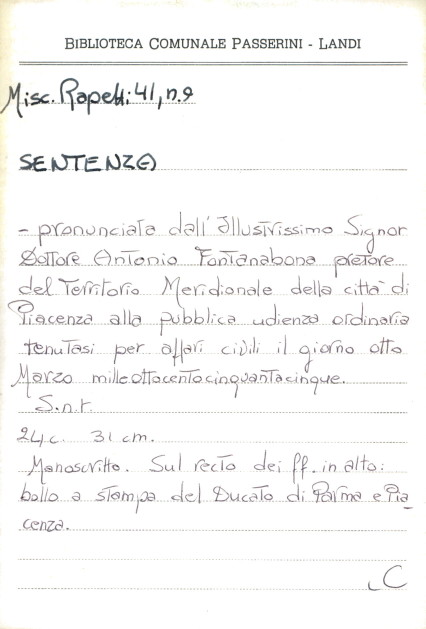 BIBLIOTECA COMUNALE PASSERINI - LANDI
Misc. Rapetti 41, n.9
SENTENZA
- pronunciata dall'Illustrissimo Signor
Dottore Antonio Fontanabona pretore
del Territorio Meridionale della città di
Piacenza alla pubblica udienza ordinaria
tenutasi per affari civili il giorno otto
Marzo milleottocentocinquantacinque.
S.n.t.
24 c. 31 cm.
Manoscritto. Sul recto dei ff. in alto:
bollo a stampa del Ducato di Parma e Pia
cenza.
C